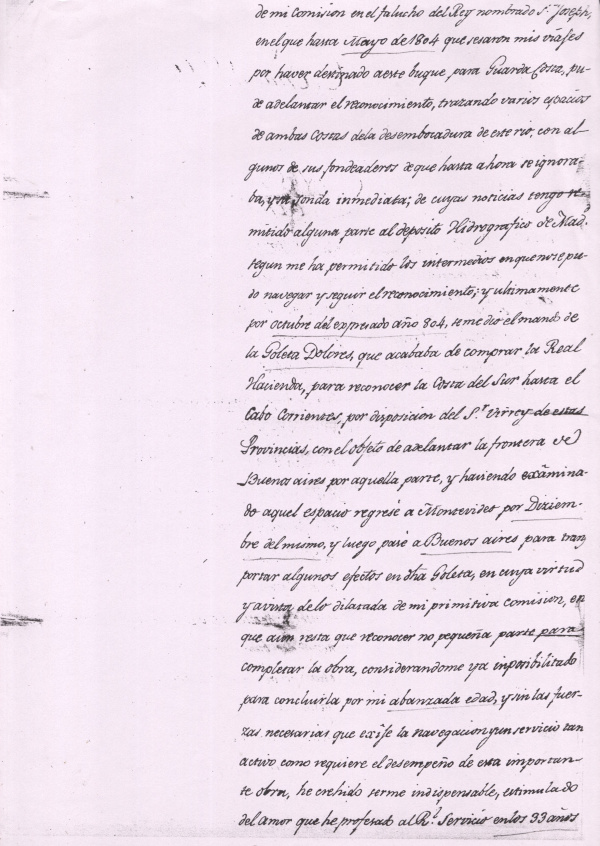 de mi Comision en el falucho del Rey nombrado Sn. Joseph,
en el que hasta Mayo de 1804 que sesaron mis viajes
por haver destinado a este buque, para Guarda Costa, pu-
de adelantar el reconocimiento, trazando varios espacios
de ambas Costas dela desembocadura de este rio, con al-
gunos de sus fondeaderos de que hasta ahora se ignora-
ba, y su sonda inmediata; de cuyas noticias tengo re-
mitido alguna parte al deposito Hidrografico de Mad.
segun me ha permitido los intermedios en que no se pu-
do navegar y seguir el reconocimiento; y ultimamente
por octubre del expresado año 804, se me dio el mando de
la Goleta Dolores, que acababa de comprar la Real
Hacienda, para reconocer la Costa del Sur hasta el
Cabo Corrientes, por disposicion del S.r Virrey de estas
Provincias, con el objeto de adelantar la frontera de
Buenos aires por aquella parte, y haviendo examina-
do aquel espacio regresé a Montevideo por Diziem-
bre del mismo, y luego pasé a Buenos aires para tranz
portar algunos efectos en dha Goleta, en cuya virtud
y a vista de lo dilatada de mi primitiva comision, en
que aun resta que reconocer no pequeña parte para
completar la obra, considerandome ya imposibilitado
para concluirla por mi abanzada edad, y sin las fuer-
zas necesarias que exije la navegacion y un servicio tan
activo como requiere el desempeño de esta importan-
te obra, he crehido serme indispensable, estimulado
del amor que he profesado al R.l Servicio en los 33 años